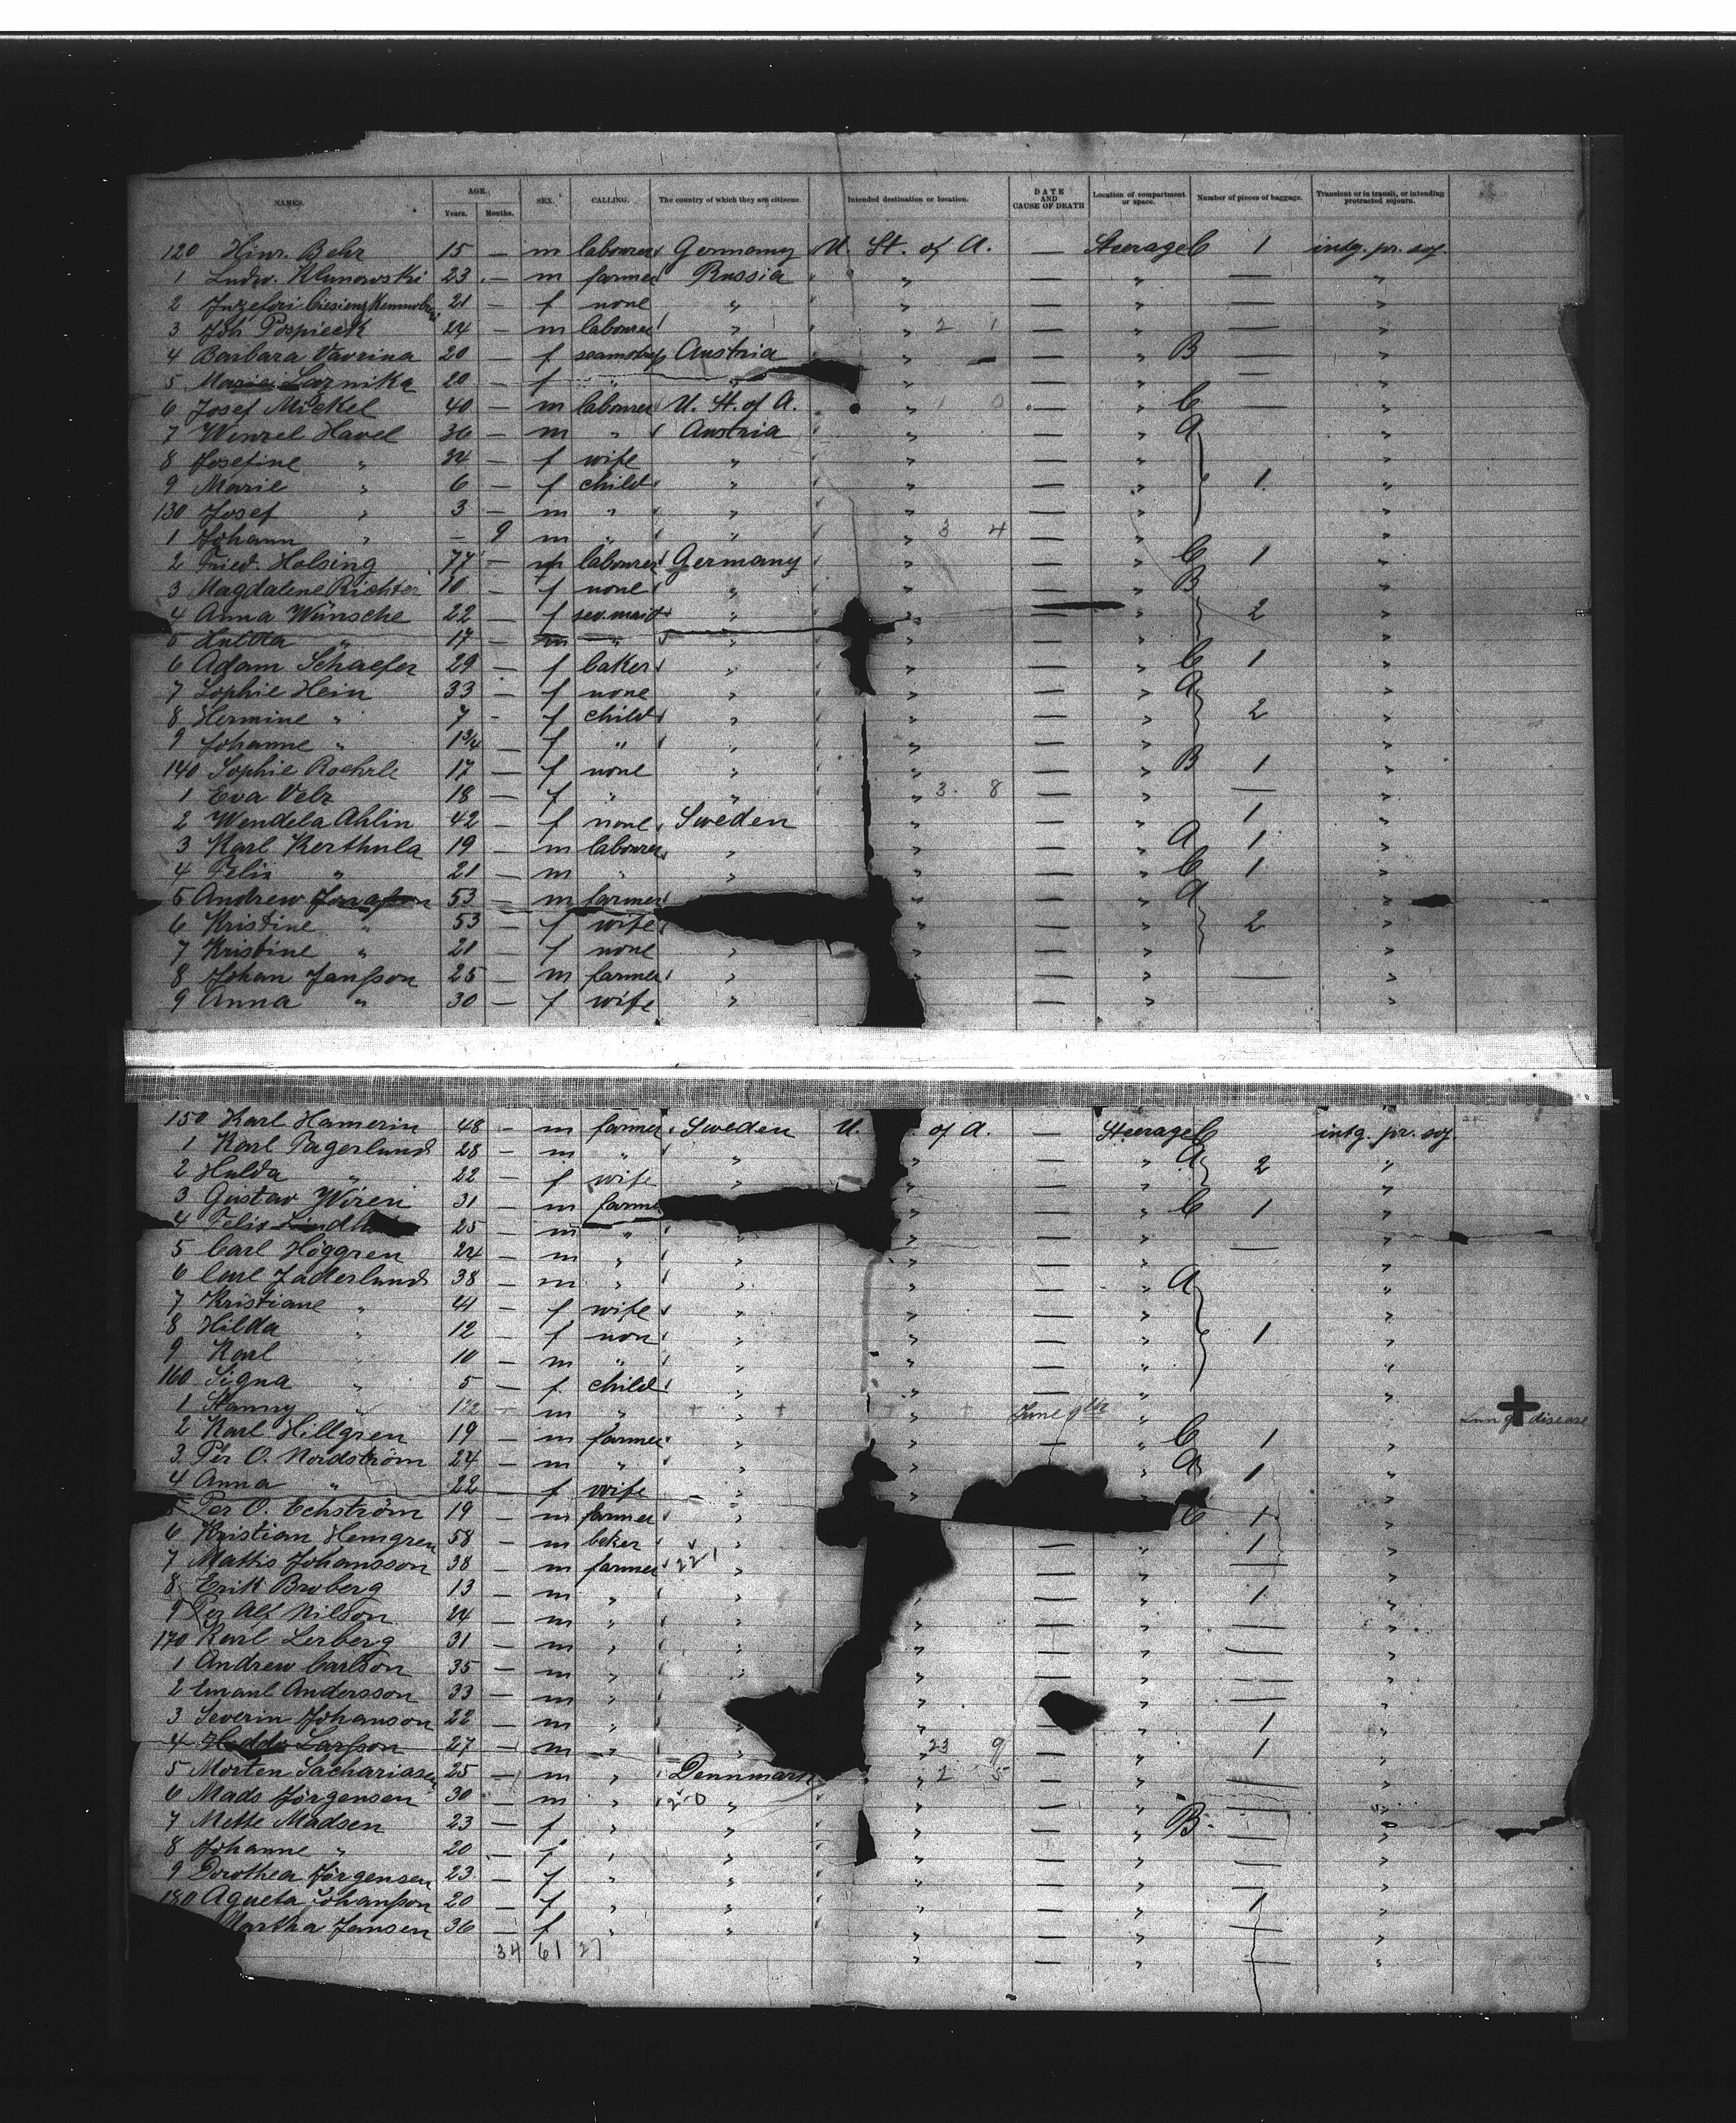 NAMES. AGE. Years. Months. SEX. CALLING. The country of which they are citizens. Intended destination or location. DATE AND CAUSE OF DEATH Location of compartment or space. Number of pieces of baggage. Transient or in transit, or intending protracted sojourn.
120 Hinr. Behr 15 — m labourer Germany U. St. of A. — Steerage C 1 intg. pr. soj.
1 Ludw. 23 — m farmer Russia " — " — "
2 21 — f none " " — " — "
3 Joh. Pospiech 24 — m labourer " " 2 1 — " — "
4 Barbara Vavrina 20 — f seamstress Austria " — " B — "
5 Marie Laznika 20 — f " " " — " — "
6 Josef Mickel 40 — m labourer U. St. of A. " 1 0 — " C — "
7 Wenzel Havel 36 — m " Austria " — " A "
8 Josefine " 34 — f wife " " — " "
9 Marie " 6 — f child " " — " 1 "
130 Josef " 3 — m " " " — " "
1 Johann " — 9 m " " " 3 4 — " "
2 Fried. Holsing 77 — m labourer Germany " — " C 1 "
3 Magdalene Richter 10 — f none " " — " B "
4 Anna Wünsche 22 — f ser. maid " " — " 2 "
5 " 17 — m " " " — " "
6 Adam Schaefer 29 — f baker " " — " C 1 "
7 Sophie Hein 33 — f none " " — " A "
8 Hermine " 7 — f child " " — " 2 "
9 Johanne " 1 3/4 — f " " " — " "
140 Sophie Roehrle 17 — f none " " — " B 1 "
1 Eva Velz 18 — f " " " 3 8 — " — "
2 Wendela Ahlin 42 — f none Sweden " — " 1 "
3 Karl Kerthula 19 — m labourer " " — " A 1 "
4 Felix " 21 — m " " " — " C 1 "
5 Andrew 53 — m farmer " — " A "
6 Kristine " 53 — f wife " — " 2 "
7 Kristine " 21 — f none " " — " "
8 Johan Jansson 25 — m farmer " " — " — "
9 Anna " 30 — f wife " " — " "
150 Karl Hamerin 48 — m farmer Sweden U. of A. — Steerage C intg. pr. soj.
1 Karl Fagerlund 28 — m " " " — " A 2 "
2 Hulda " 22 — f wife " " — " "
3 Gustav Wiren 31 — m farmer " — " C 1 "
4 Felix 25 — m " " " — " "
5 Carl Höggren 24 — m " " " — " — "
6 Carl Jäderlund 38 — m " " " — " A "
7 Kristiane " 41 — f wife " " — " "
8 Hilda " 12 — f non " " — " 1 "
9 Karl " 10 — m " " " — " "
160 Signa " 5 — f child " " — " "
1 " 1 1/2 — m " " " June 9th " " Lung disease
2 Karl Hillgren 19 — m farmer " " — " C 1 "
3 Per O. Nordström 24 — m " " " — " A 1 "
4 Anna " 22 — f wife " " " "
5 Per O. Echström 19 — m farmer " C 1 "
6 Kristian Hemgren 58 — m beker " — " 1 "
7 Mattis Johansson 38 — m farmer 22 1 " — " — "
8 Erik Broberg 13 — m " " " — " 1 "
9 Per Alf Nilson 24 — m " " " — " "
170 Karl Lerberg 31 — m " " " — " — "
1 Andrew Carlson 35 — m " " " — " — "
2 Emanl Andersson 33 — m " " — " — "
3 Severin Johanson 22 — m " " " " 1 "
4 Larsson 27 — m " " " 23 9 — " 1 "
5 Morten Sachariasen 25 — m " Dennmark " 2 5 — " — "
6 Mads Jörgensen 30 — m " 20 " " — " — "
7 Mette Madsen 23 — f " " " — " B — "
8 Johanne " 20 — f " " " — " — "
9 Dorothea Jörgensen 23 — f " " " — " — "
180 Agneta Johansson 20 — f " " " — " 1 "
Martha Jansen 36 — f " " " — " — "
34 61 27